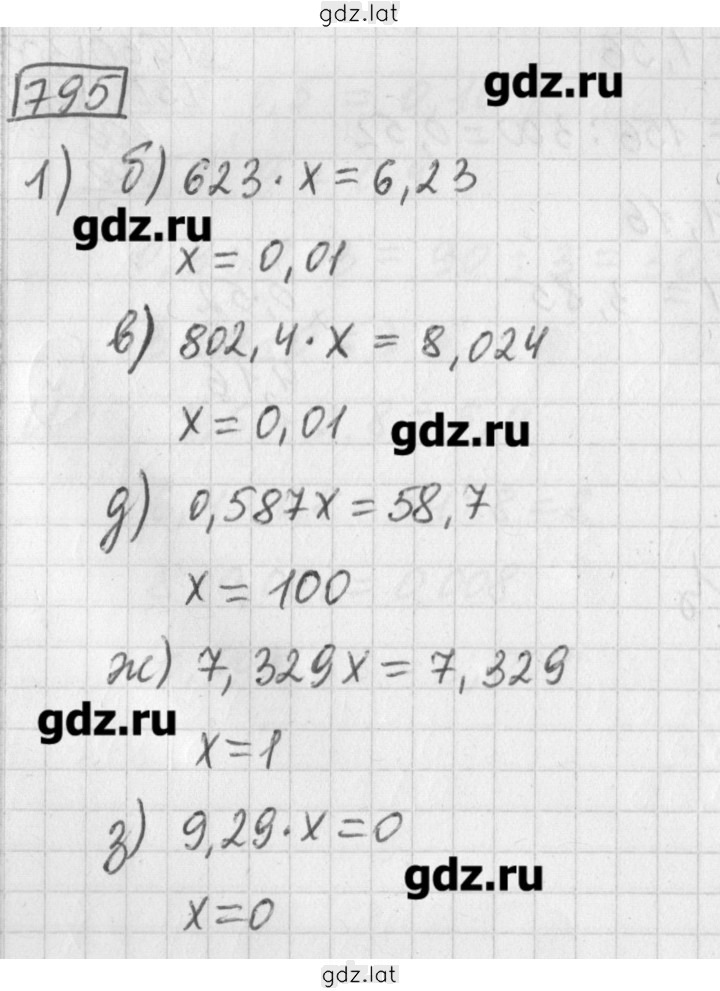 gdz.lat
795
gdz.ru
1) б) 623 · x = 6,23
gdz.ru
x = 0,01
в) 802,4 · x = 8,024
x = 0,01
gdz.ru
д) 0,587x = 58,7
x = 100
ж) 7,329x = 7,329
gdz.ru
x = 1
з) 9,29 · x = 0
gdz.ru
x = 0
gdz.lat